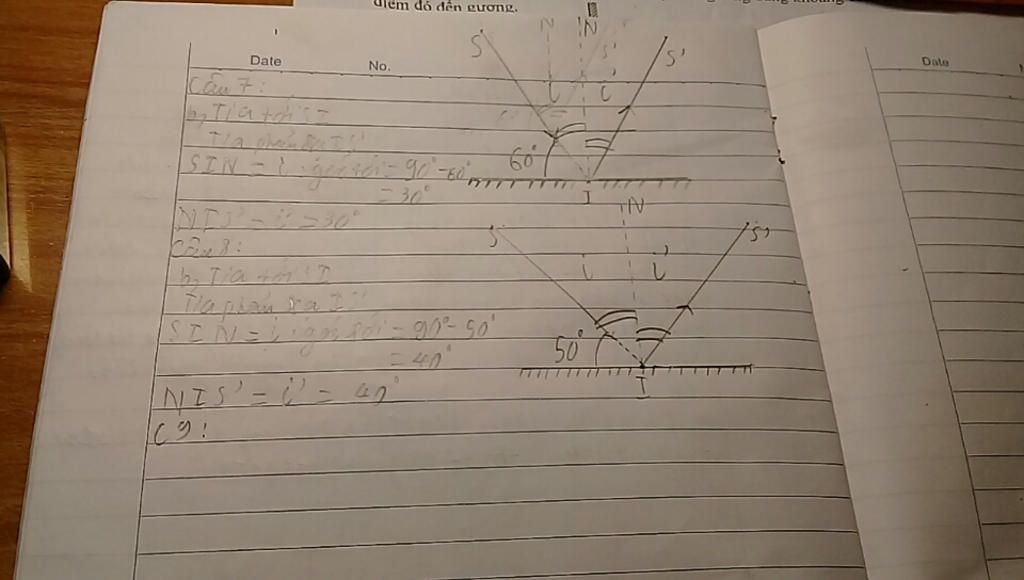 điểm đó đến gương.
Date No.
Câu 7:
Tia tới SI
Tia phản xạ IS'
SIN = i : góc tới = 90° - 60°
= 30°
NIS' = i' = 30°
Câu 8:
Tia tới SI
Tia phản xạ IS'
SIN = i : góc tới = 90° - 50°
= 40°
NIS' = i' = 40°
C9:
S N N S' S'
i i'
60°
I
S N S'
i i'
50°
I
Date